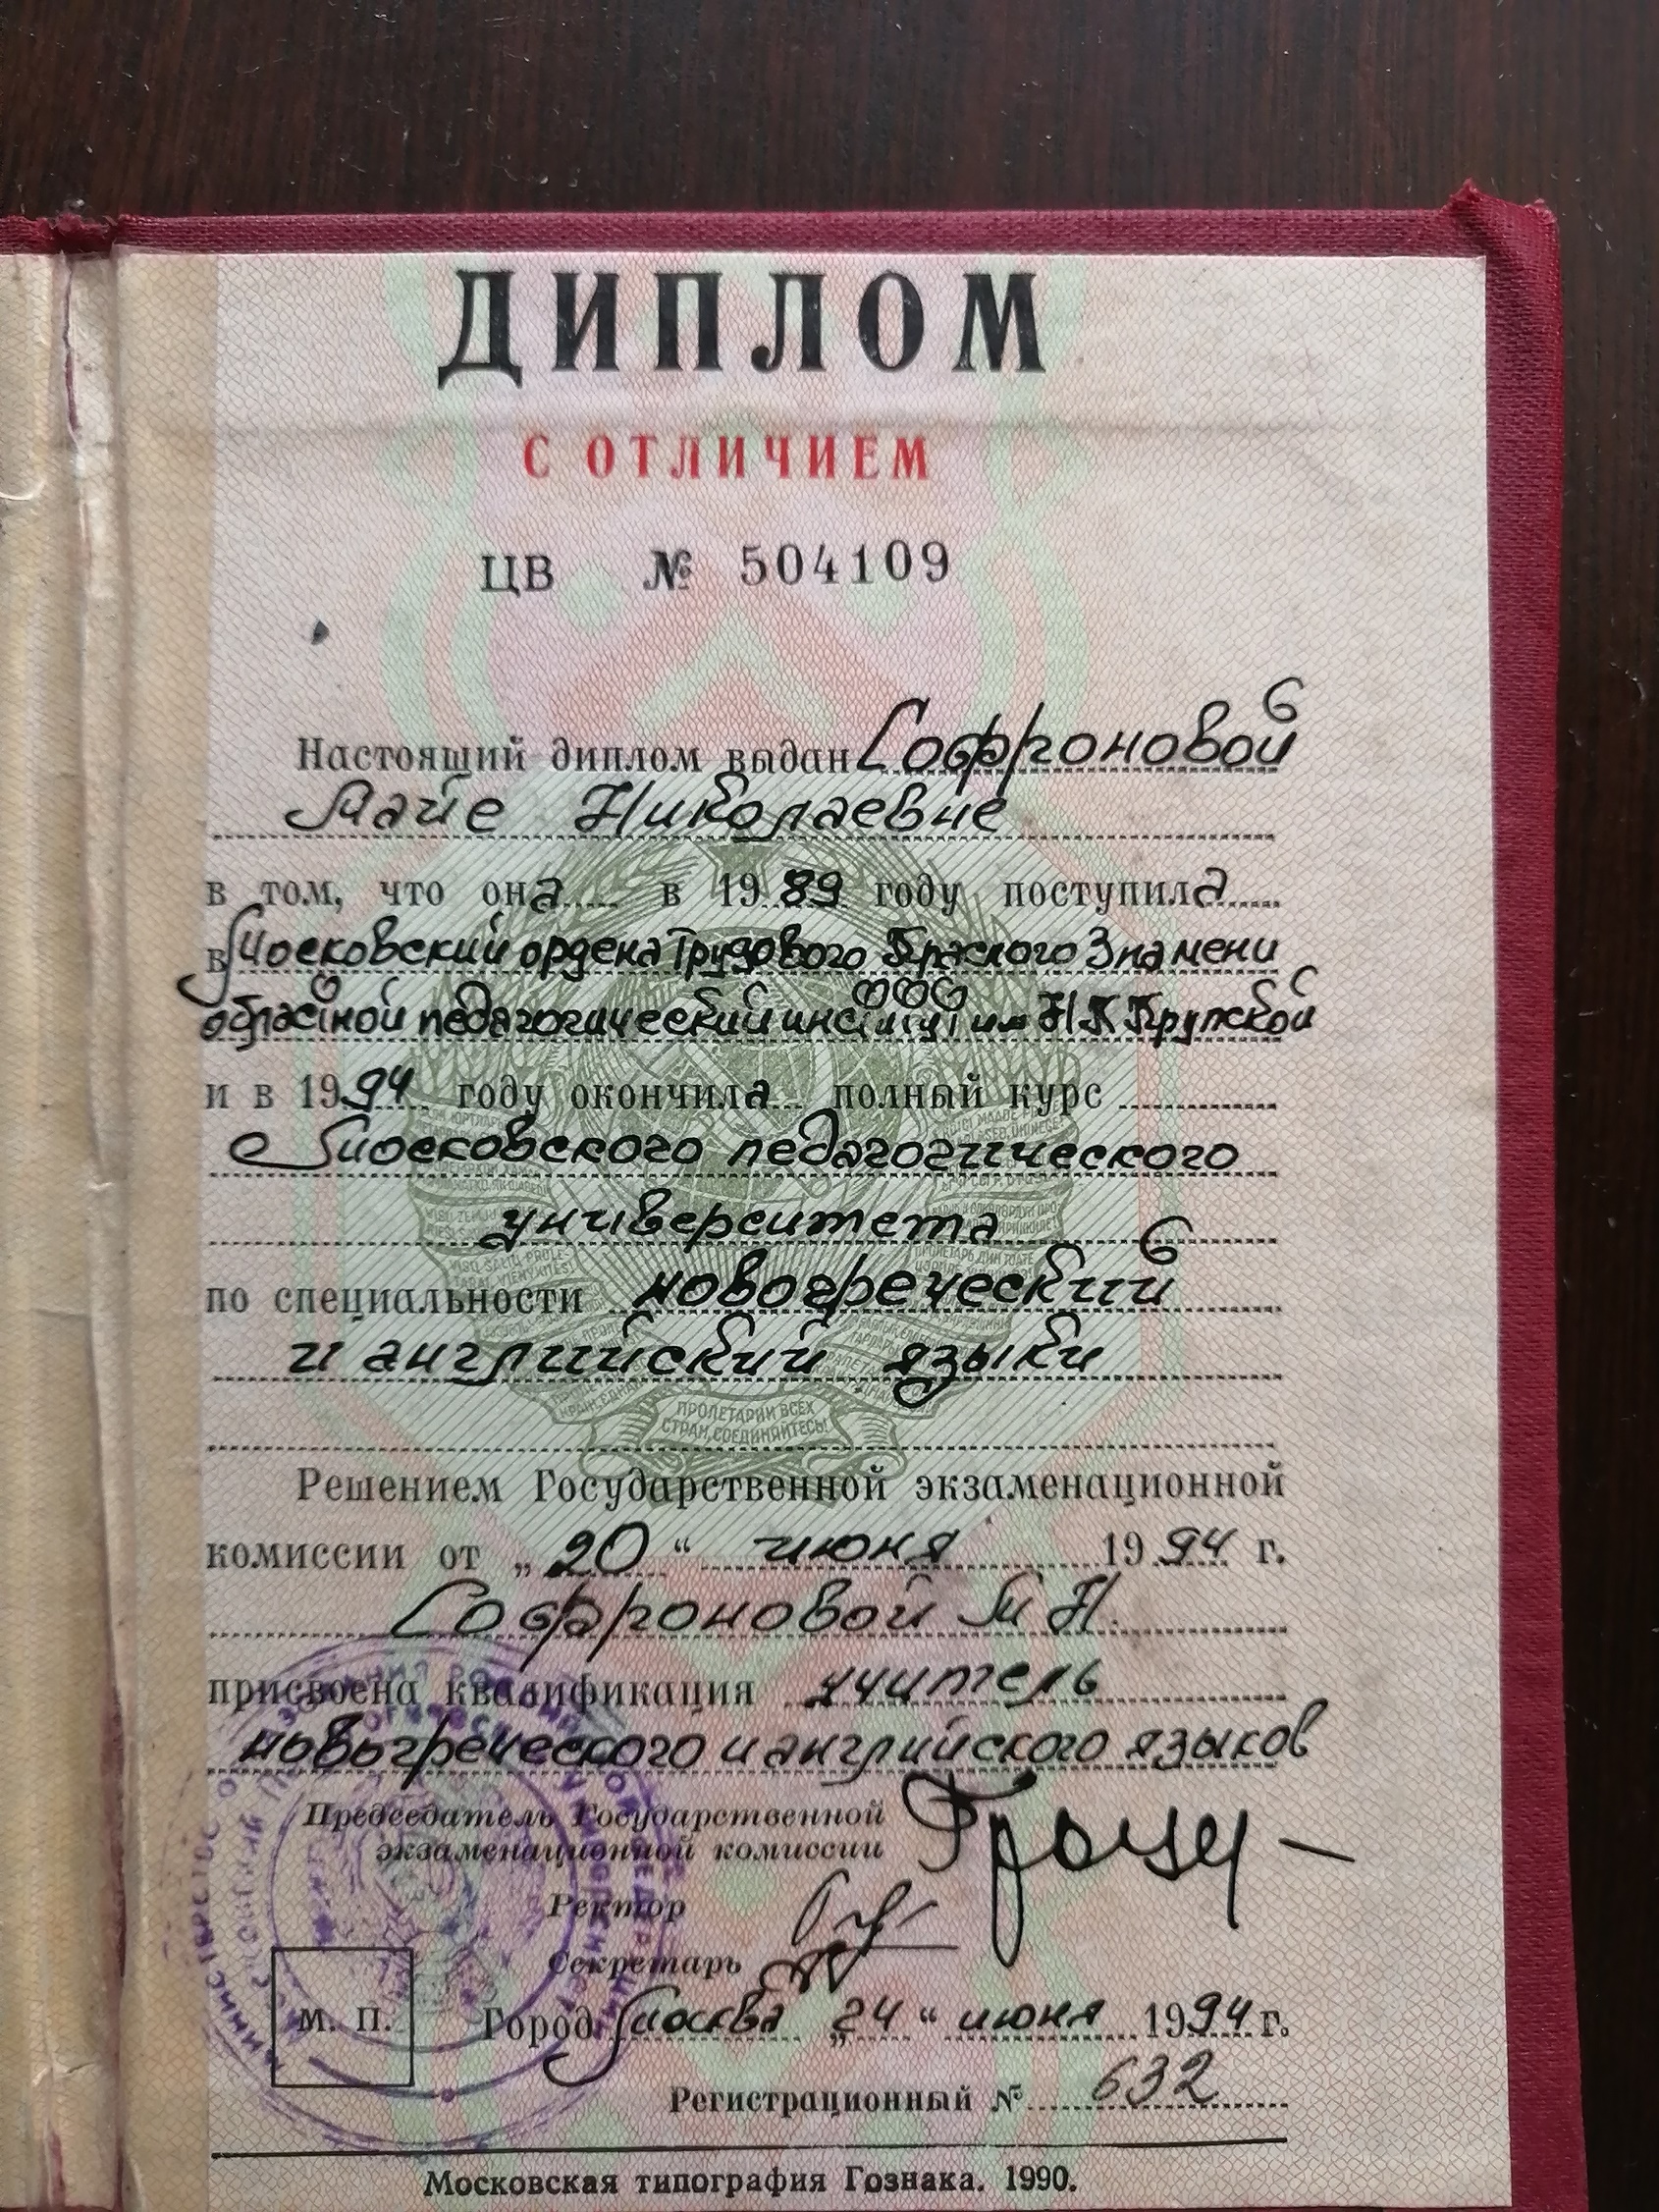 ДИПЛОМ
С ОТЛИЧИЕМ
ЦВ № 504109
Настоящий диплом выдан Софроновой
Майе Николаевне
в том, что она в 1989 году поступила
в Московский ордена Трудового Красного Знамени
областной педагогический институт им Н К Крупской
и в 1994 году окончила полный курс
Московского педагогического
университета
по специальности новогреческий
и английский языки
ПРОЛЕТАРИИ ВСЕХ
СТРАН, СОЕДИНЯЙТЕСЬ!
Решением Государственной экзаменационной
комиссии от „20“ июня 1994 г.
Софроновой М Н.
присвоена квалификация учитель
новогреческого и английского языков
Председатель Государственной
экзаменационной комиссии
Ректор
Секретарь
М. П.
Город Москва „24“ июня 1994 г.
Регистрационный № 632
Московская типография Гознака. 1990.